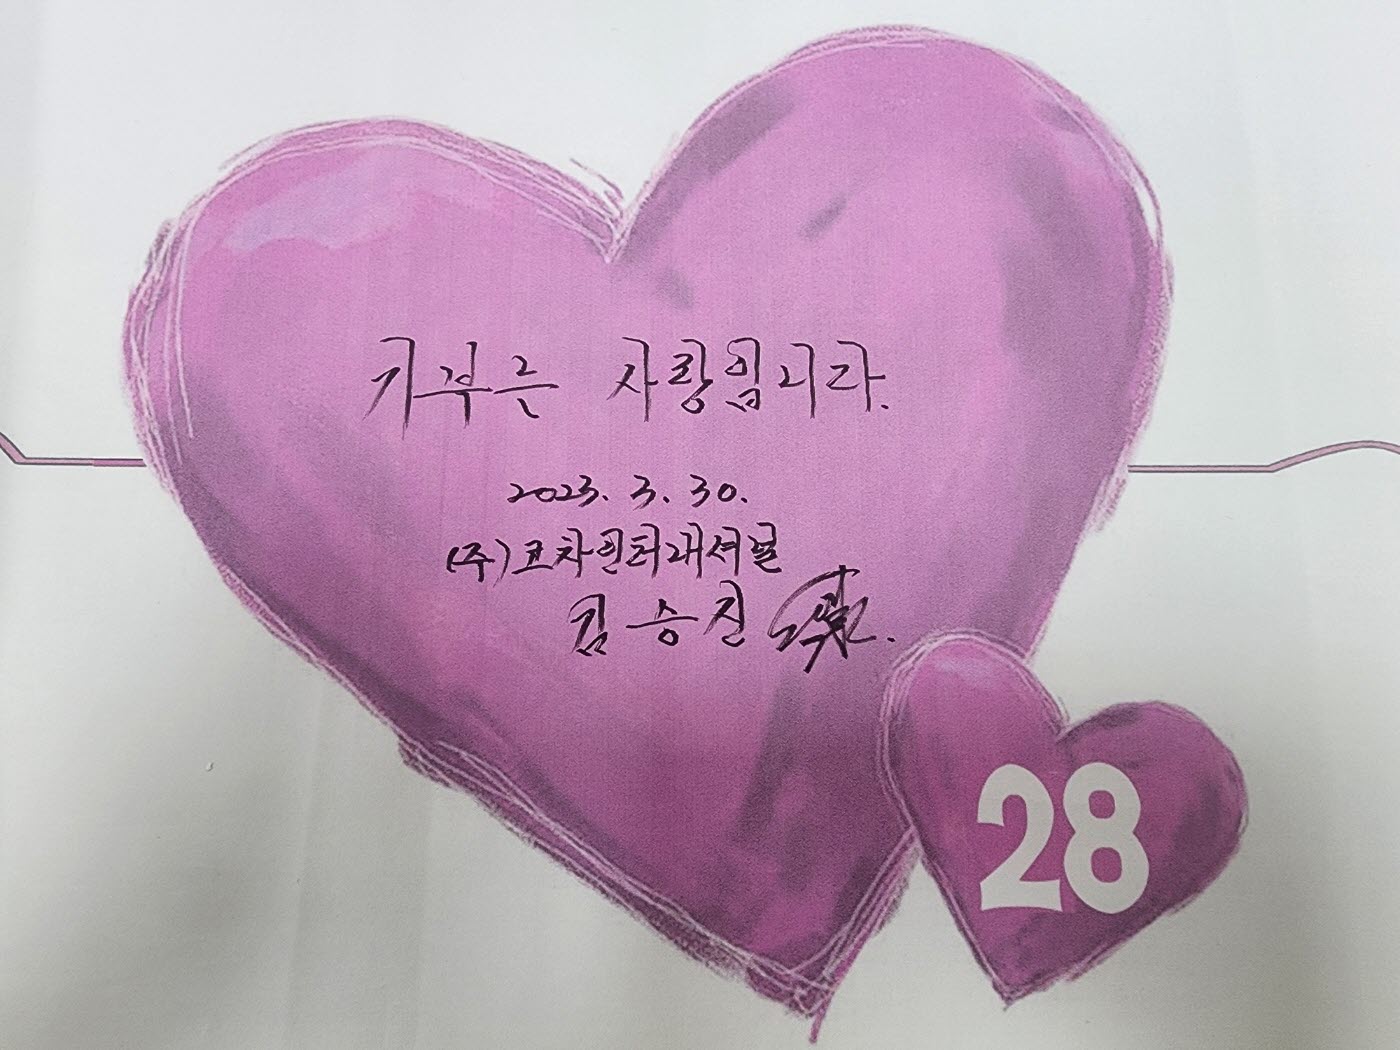 기부는 사랑입니다.
2023. 3. 30.
(주)코차인터내셔널
김승진
28